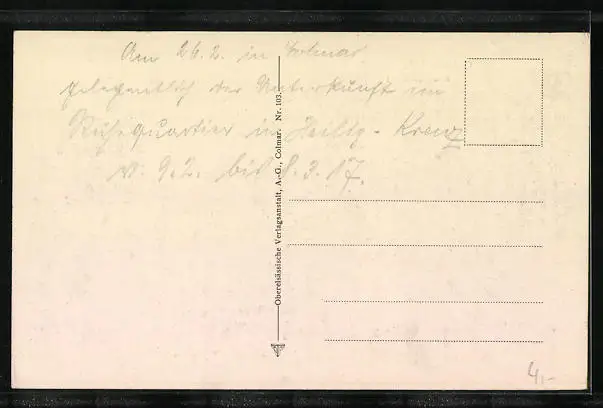 Am 26.2. in Colmar.
gelegentlich der Unterkunft im
Ruhequartier in Heilig-Kreuz
v. 9.2. bis 8.3.17.
Oberelsässische Verlagsanstalt, A.-G., Colmar. Nr. 103.
4,-